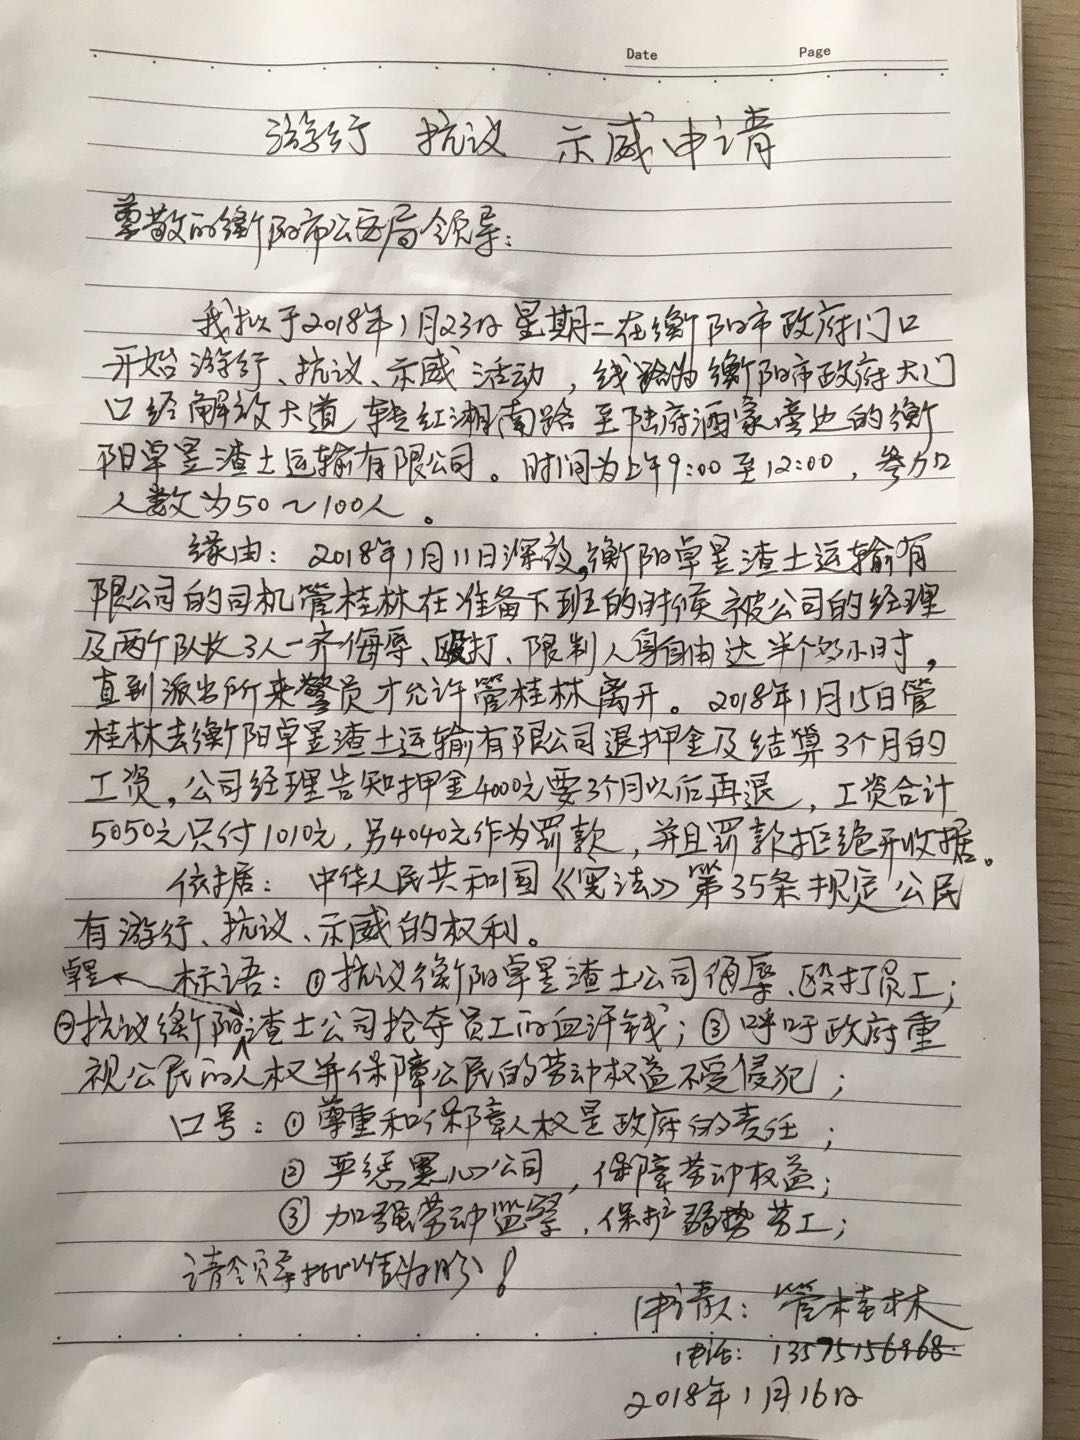 Date Page
游行 抗议 示威申请
尊敬的衡阳市公安局领导:
我拟于2018年1月23日星期二在衡阳市政府门口
开始游行、抗议、示威活动，线路为衡阳市政府大门
口经解放大道转红湘南路至陆府酒家旁边的衡
阳卓昱渣土运输有限公司。时间为上午9:00至12:00，参加
人数为50～100人。
缘由：2018年1月11日深夜,衡阳卓昱渣土运输有
限公司的司机管桂林在准备下班的时候被公司的经理
及两个队长3人一齐侮辱、殴打、限制人身自由达半个多小时，
直到派出所来警员才允许管桂林离开。2018年1月15日管
桂林去衡阳卓昱渣土运输有限公司退押金及结算3个月的
工资，公司经理告知押金4000元要3个月以后再退，工资合计
5050元只付1010元，另4040元作为罚款，并且罚款拒绝开收据。
依据：中华人民共和国《宪法》第35条规定公民
有游行、抗议、示威的权利。
标语：①抗议衡阳卓昱渣土公司侮辱、殴打员工；
②抗议衡阳卓昱渣土公司抢夺员工的血汗钱；③呼吁政府重
视公民的人权并保障公民的劳动权益不受侵犯；
口号：①尊重和保障人权是政府的责任；
②严惩黑心公司，保障劳动权益；
③加强劳动监察，保护弱势劳工；
请领导批准为盼！
申请人：管桂林
电话：13575156968
2018年1月16日